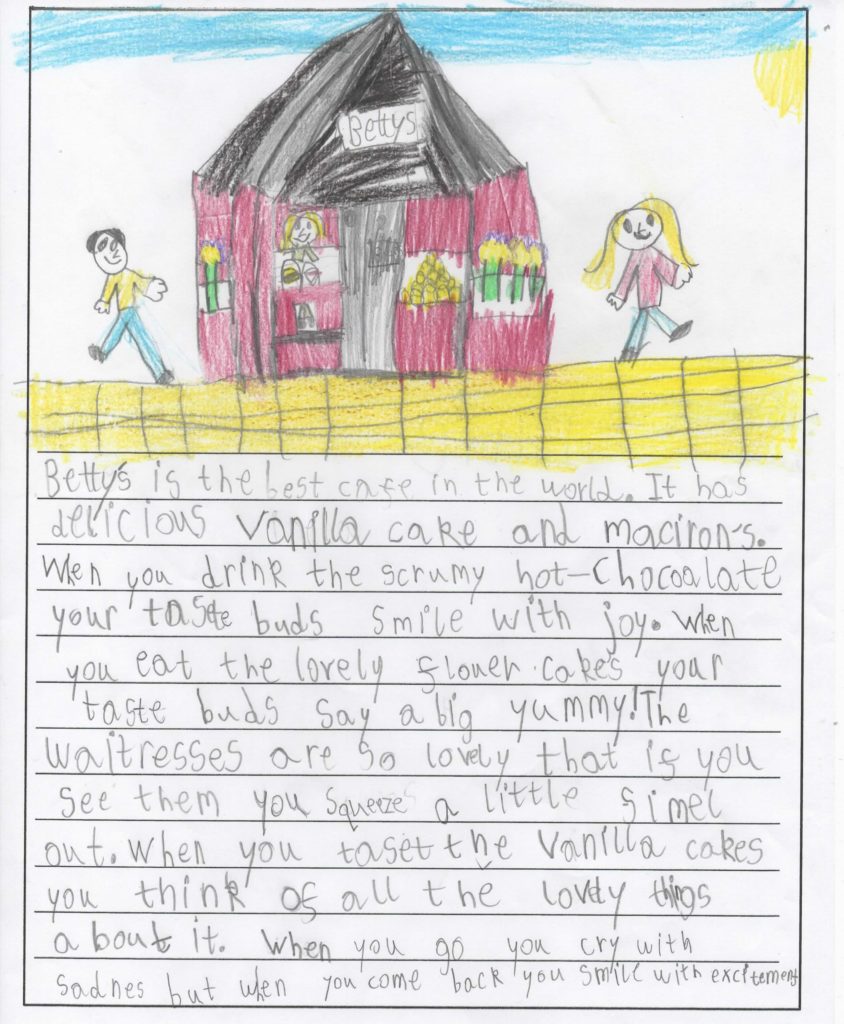 Bettys
A
Betty's is the best cafe in the world. It has
delicious vanilla cake and maciron's.
When you drink the scrumy hot-Chocoalate
your taste buds smile with joy. When
you eat the lovely flower.cakes your
taste buds say a big yummy! The
waitresses are so lovely that if you
see them you squeeze a little simel
out. When you taset the vanilla cakes
you think of all the lovely things
about it. When you go you cry with
sadnes but when you come back you smile with excitement